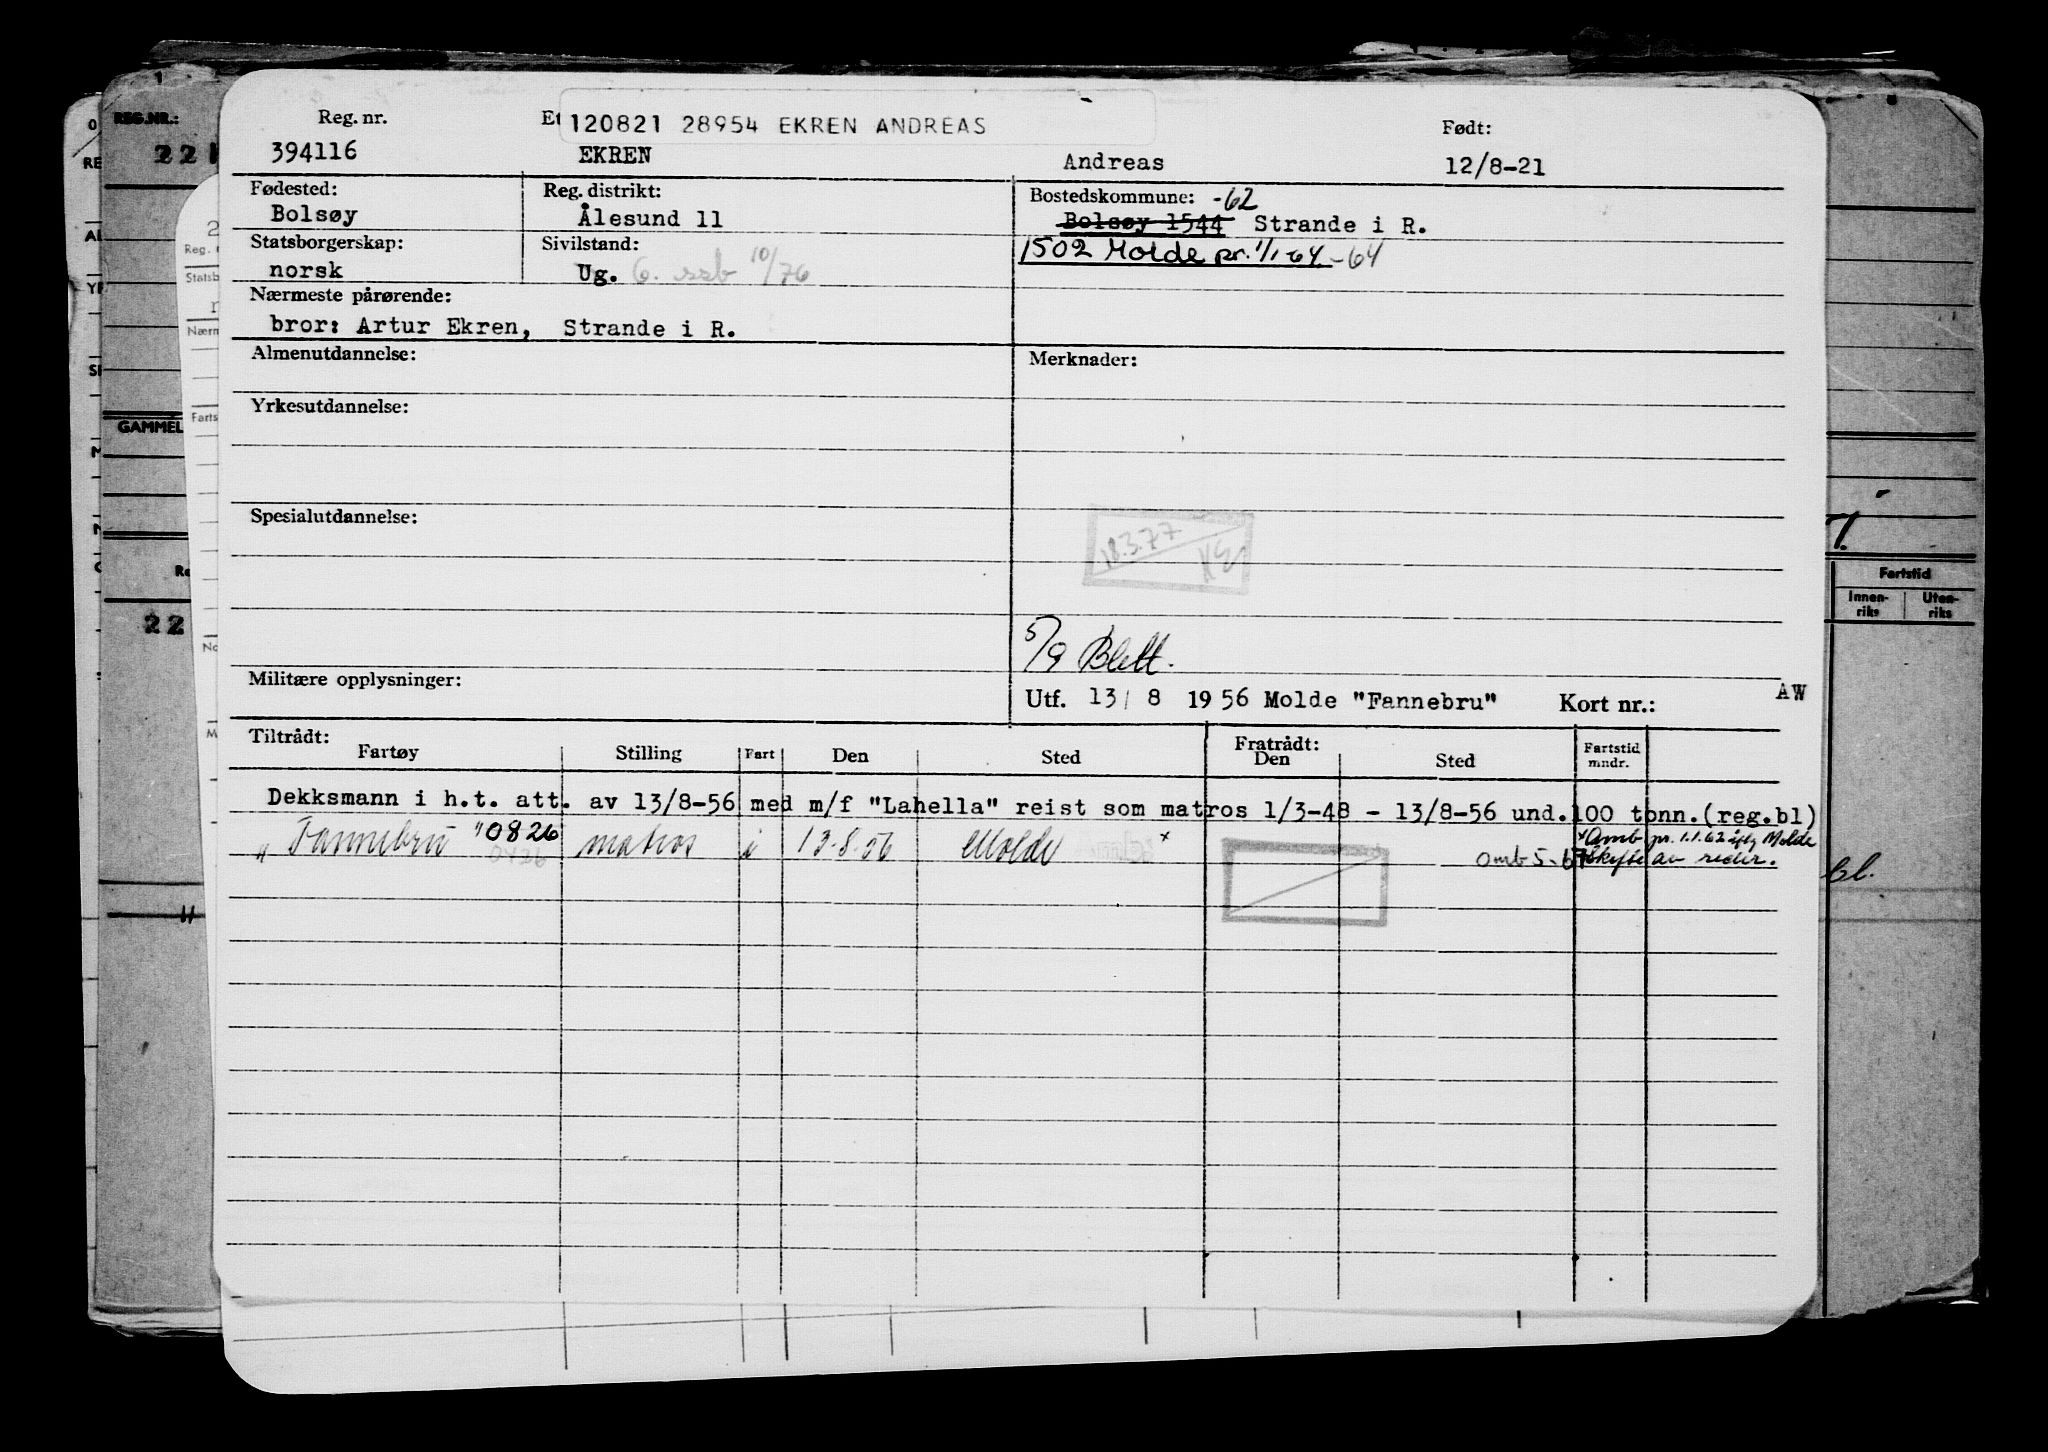 Reg. nr. Et 120821 28954 EKREN ANDREAS Født:
394116 EKREN Andreas 12/8-21
Fødested: Reg. distrikt: Bostedskommune: -62
Bolsøy Ålesund 11 Bolsøy 1544 Strande i R.
Statsborgerskap: Sivilstand: 1502 Molde pr. 1/1-64 -64
norsk Ug. 6. ssb 10/76
Nærmeste pårørende:
bror: Artur Ekren, Strande i R.
Almenutdannelse: Merknader:
Yrkesutdannelse:
Spesialutdannelse:
18.3.77
5/9 Blett.
Militære opplysninger:
Utf. 13/8 1956 Molde "Fannebru" Kort nr.: AW
Tiltrådt: Fratrådt:
Fartøy Stilling Fart Den Sted Den Sted Fartstid mndr.
Dekksmann i h.t. att. av 13/8-56 med m/f "Lahella" reist som matros 1/3-48 - 13/8-56 und.100 tonn.(reg.bl)
"Fannebru" 0826 matros i 13.8.56 Molde x x Omb pr. 1.1.62 Molde
Omb 5-67 Skifte av reder.
REG.NR.:
22
GAMMEL
22
Fartstid
Innen-
riks
Uten-
riks
bl.